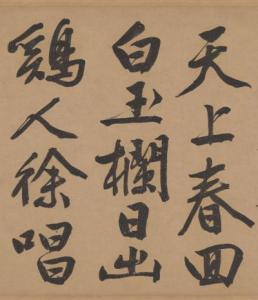 天上春回
白玉欄日出
鷄人徐唱